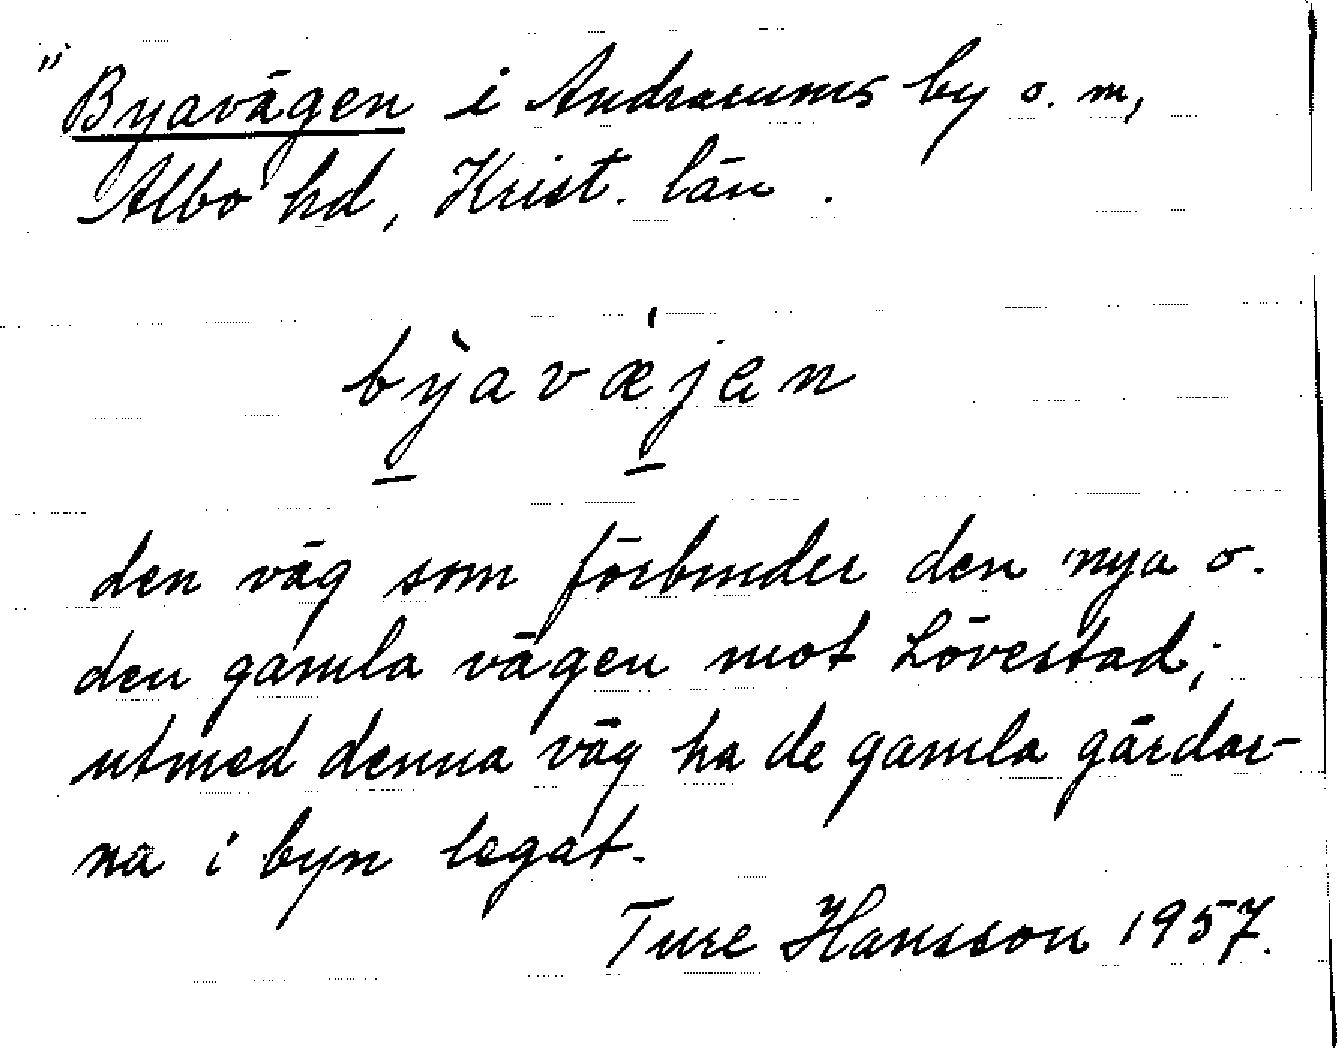 " Byavägen i Andrarums by o. m,
Albo hd, Krist. län.
bỳavæ̍jen
den väg som förbinder den nya o.
den gamla vägen mot Lövestad;
utmed denna väg ha de gamla gårdar-
na i byn legat.
Ture Hansson 1957.